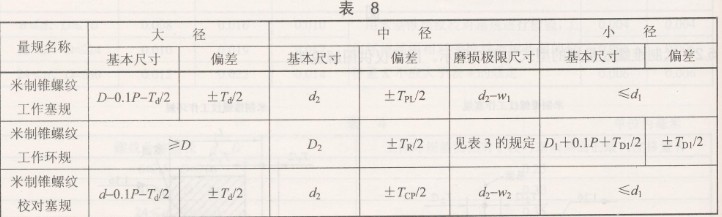 表 8
量规名称 大 径 中 径 小 径
基本尺寸 偏差 基本尺寸 偏差 磨损极限尺寸 基本尺寸 偏差
米制锥螺纹
工作塞规 D–0.1P–Td/2 ±Td/2 d2 ±TPL/2 d2–w1 ≤d1
米制锥螺纹
工作环规 ≥D D2 ±TR/2 见表 3 的规定 D1+0.1P+TD1/2 ±TD1/2
米制锥螺纹
校对塞规 d–0.1P–Td/2 ±Td/2 d2 ±TCP/2 d2–w2 ≤d1